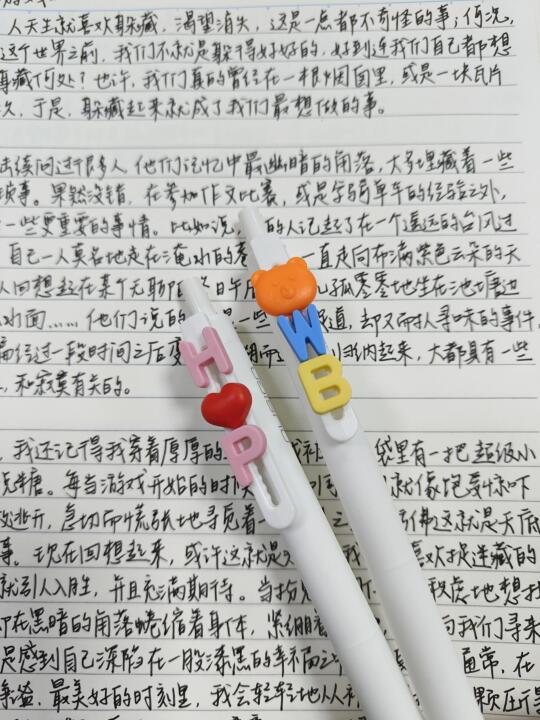 人天生就喜欢躲藏,渴望消失,这是一点都不奇怪的事;何况,
这个世界之前,我们不就是躲得好好的,好到连我们自己都想
藏何处?也许,我们真的曾经在一根烟囱里,或是一块瓦片
次,于是,躲藏起来就成了我们最想做的事。
续问过很多人,他们记忆中最幽暗的角落,大多埋藏着一些
琐事。果然没错,在参加作文比赛,或是学骑单车的经验之外,
一些更重要的事情。比如说,的人记起了在一个遥远的台风过
自己一人莫名地走在淹水的 一直走向布满紫色云朵的天
人回想起在某个无聊 日午 孤零零地坐在池塘边
水面……他们说的 是一些 道,却又耐人寻味的事件,
经过一段时间之后 归纳起来,大都具有一些
和寂寞有关的。
H
P
W
B
我还记得我穿着厚厚的 袋里有一把超级小
糖。每当游戏开始的时 就像饱受惊吓
逃开,急切而慌张地寻觅着一 佛这就是天底
事。现在回想起来,或许这就是 喜欢捉迷藏的
就引人入胜,并且充满期待。当扮 虑地想找
在黑暗的角落蜷缩着身体,紧绷 向我们寻来
是感到自己深陷在一股漆黑的 通常,在
最美好的时刻里,我会轻轻地从 颗压得